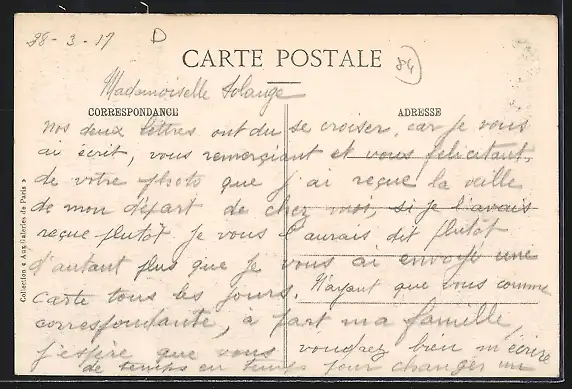 28-3-17 D
CARTE POSTALE
84
Mademoiselle Solange
CORRESPONDANCE ADRESSE
Nos deux lettres ont du se croiser, car je vous
ai écrit, vous remerciant et vous felicitant,
de votre photo que j'ai reçue la veille
de mon départ de chez moi, si je l'avais
reçue plutôt je vous l'aurais dit plutôt
d'autant plus que je vous ai envoyé une
carte tous les jours. N'ayant que vous comme
correspondante, a part ma famille,
j'espère que vous voudrez bien m'écrire
de temps en temps pour changer un
Collection « Aux Galeries de Paris »